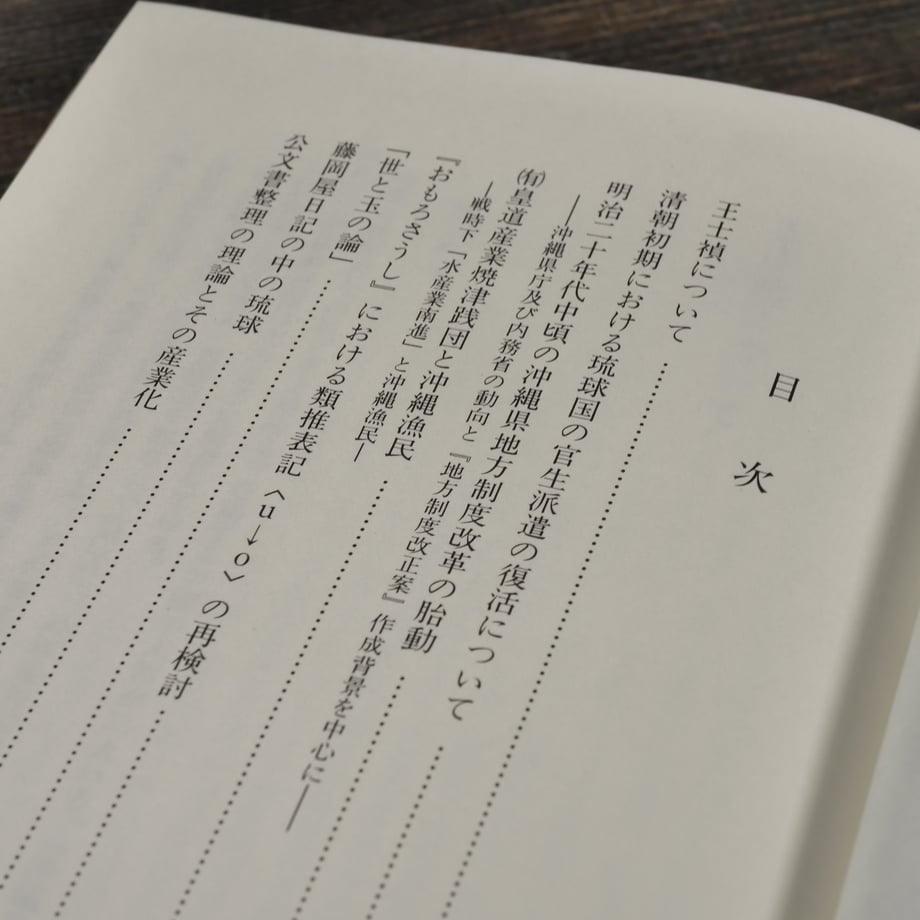 目次
王士禎について
清朝初期における琉球国の官生派遣の復活について
明治二十年代中頃の沖縄県地方制度改革の胎動
――沖縄県庁及び内務省の動向と『地方制度改正案』作成背景を中心に――
㈲皇道産業焼津践団と沖縄漁民
―戦時下「水産業南進」と沖縄漁民―
『おもろさうし』における類推表記〈u→o〉の再検討
「世と玉の論」
藤岡屋日記の中の琉球
公文書整理の理論とその産業化